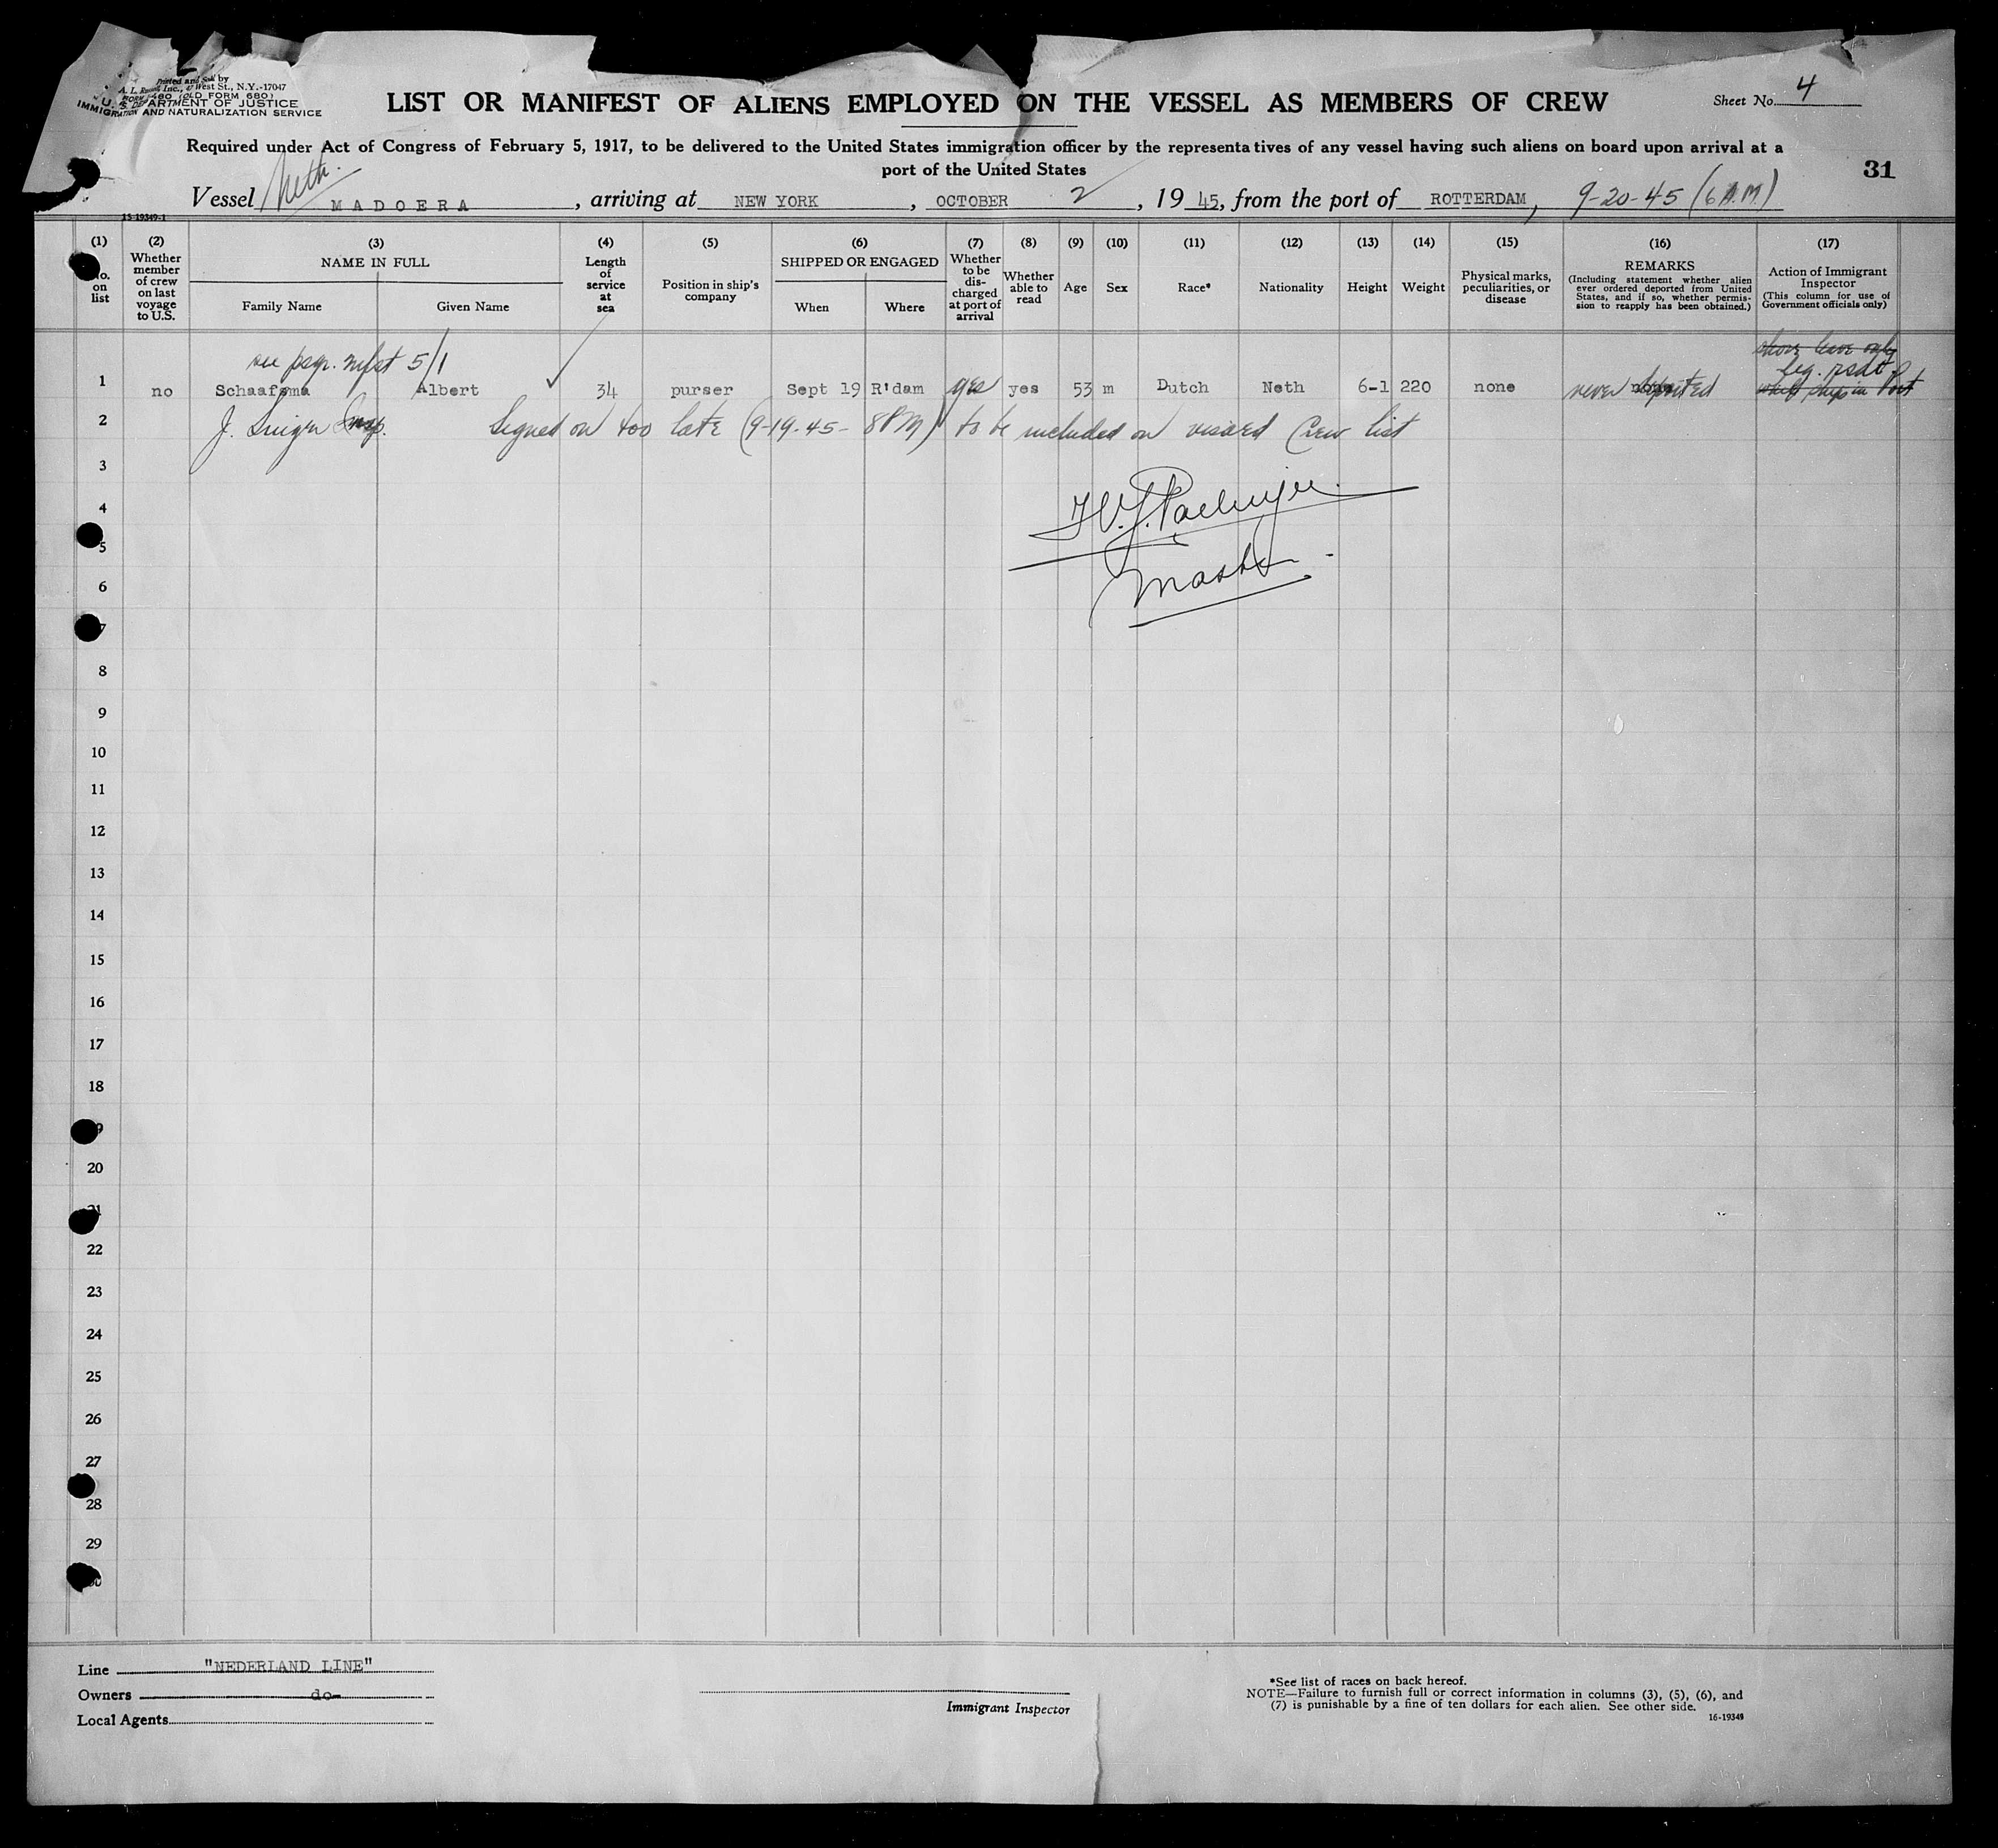 Printed and Sold by
A. L. Russell Inc., 47 West St., N.Y.-17047
FORM I-480 (OLD FORM 680)
U. S. DEPARTMENT OF JUSTICE
IMMIGRATION AND NATURALIZATION SERVICE
LIST OR MANIFEST OF ALIENS EMPLOYED ON THE VESSEL AS MEMBERS OF CREW
Sheet No. 4
Required under Act of Congress of February 5, 1917, to be delivered to the United States immigration officer by the representatives of any vessel having such aliens on board upon arrival at a
port of the United States
31
Vessel Neth. MADOERA, arriving at NEW YORK, OCTOBER 2, 19 45, from the port of ROTTERDAM, 9-20-45 (6 A.M)
15-19349-1
(1) (2) (3) (4) (5) (6) (7) (8) (9) (10) (11) (12) (13) (14) (15) (16) (17)
No. on list
Whether member of crew on last voyage to U.S.
NAME IN FULL
Family Name Given Name
Length of service at sea
Position in ship's company
SHIPPED OR ENGAGED
When Where
Whether to be discharged at port of arrival
Whether able to read
Age
Sex
Race*
Nationality
Height
Weight
Physical marks, peculiarities, or disease
REMARKS
(Including statement whether alien ever ordered deported from United States, and if so, whether permission to reapply has been obtained.)
Action of Immigrant Inspector
(This column for use of Government officials only)
see psgr. mfst 5/1
shore leave only
leg. rsdt
1 no Schaafsma Albert 34 purser Sept 19 R'dam yes yes 53 m Dutch Neth 6-1 220 none never deported while ship in Port
2 J. Insp. Signed on too late (9-19-45- 8PM) to be included on visaed Crew list
3
4
5
Master
6
7
8
9
10
11
12
13
14
15
16
17
18
19
20
21
22
23
24
25
26
27
28
29
30
Line "NEDERLAND LINE"
Owners do-
Local Agents
Immigrant Inspector
*See list of races on back hereof.
NOTE—Failure to furnish full or correct information in columns (3), (5), (6), and
(7) is punishable by a fine of ten dollars for each alien. See other side.
16-19349